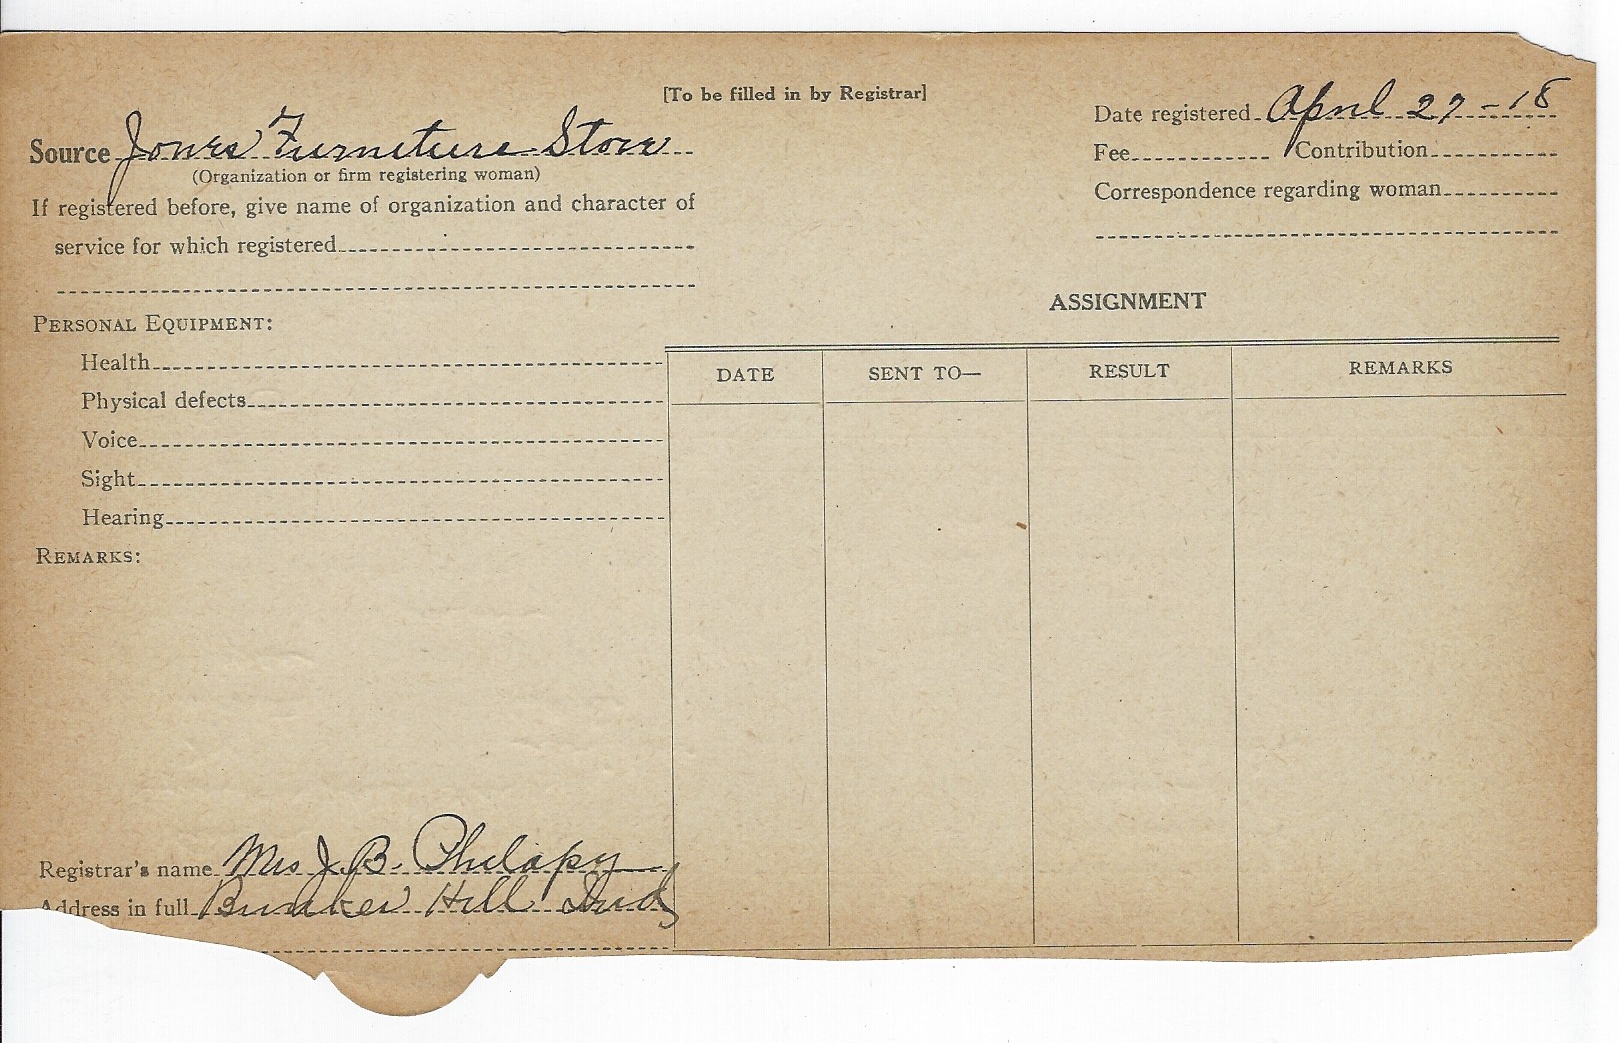 [To be filled in by Registrar]
Source Jones Furniture Store
(Organization or firm registering woman)
If registered before, give name of organization and character of
service for which registered
Date registered April 27-18
Fee Contribution
Correspondence regarding woman
PERSONAL EQUIPMENT:
Health
Physical defects
Voice
Sight
Hearing
REMARKS:
ASSIGNMENT
DATE SENT TO— RESULT REMARKS
Registrar's name Mrs J. B. Philapy
Address in full Bunker Hill Ind